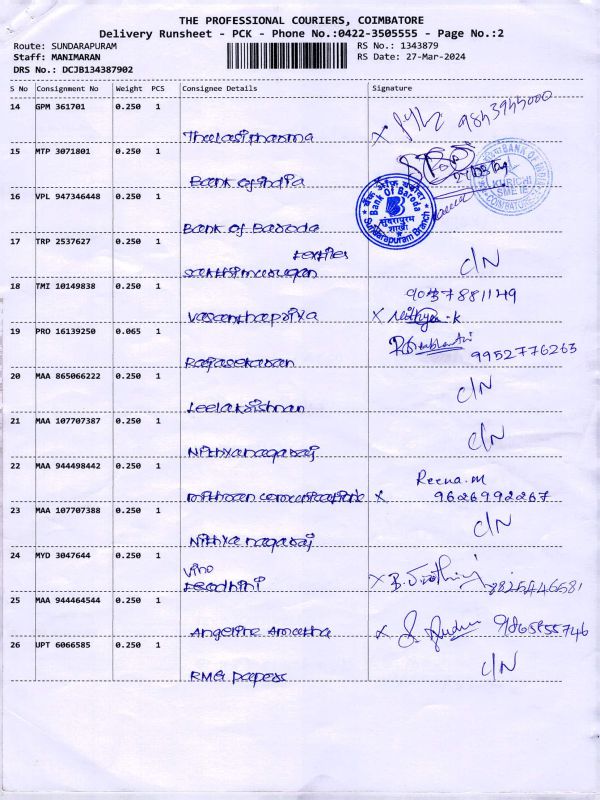 THE PROFESSIONAL COURIERS, COIMBATORE
Delivery Runsheet - PCK - Phone No.:0422-3505555 - Page No.:2
Route: SUNDARAPURAM RS No.: 1343879
Staff: MANIMARAN RS Date: 27-Mar-2024
DRS No.: DCJB134387902
S No Consignment No Weight PCS Consignee Details Signature
14 GPM 361701 0.250 1 Thulasi pharma x 9843944000
15 MTP 3071801 0.250 1 Bank of India
BANK OF INDIA
KURICHI
SME
COIMBATORE
16 VPL 947346448 0.250 1 Bank of Baroda
बैंक ऑफ़ बड़ौदा
Bank Of Baroda
शाखा
Sundarapuram Branch
17 TRP 2537627 0.250 1 textiles
sakthimurugan C/N
18 TMI 10149838 0.250 1 Vasanthapriya
x Nithya.k
19 PRO 16139250 0.065 1 Rajasekaran 9952776263
20 MAA 865066222 0.250 1 Leelakrishnan C/N
21 MAA 107707387 0.250 1 Nithyanagaraj C/N
22 MAA 944498442 0.250 1 Reena.M
x 9626992267
23 MAA 107707388 0.250 1 Nithya nagaraj C/N
24 MYD 3047644 0.250 1 vino
x 8825446581
25 MAA 944464544 0.250 1 Angeline Amutha x
26 UPT 6066585 0.250 1 RMG papers C/N